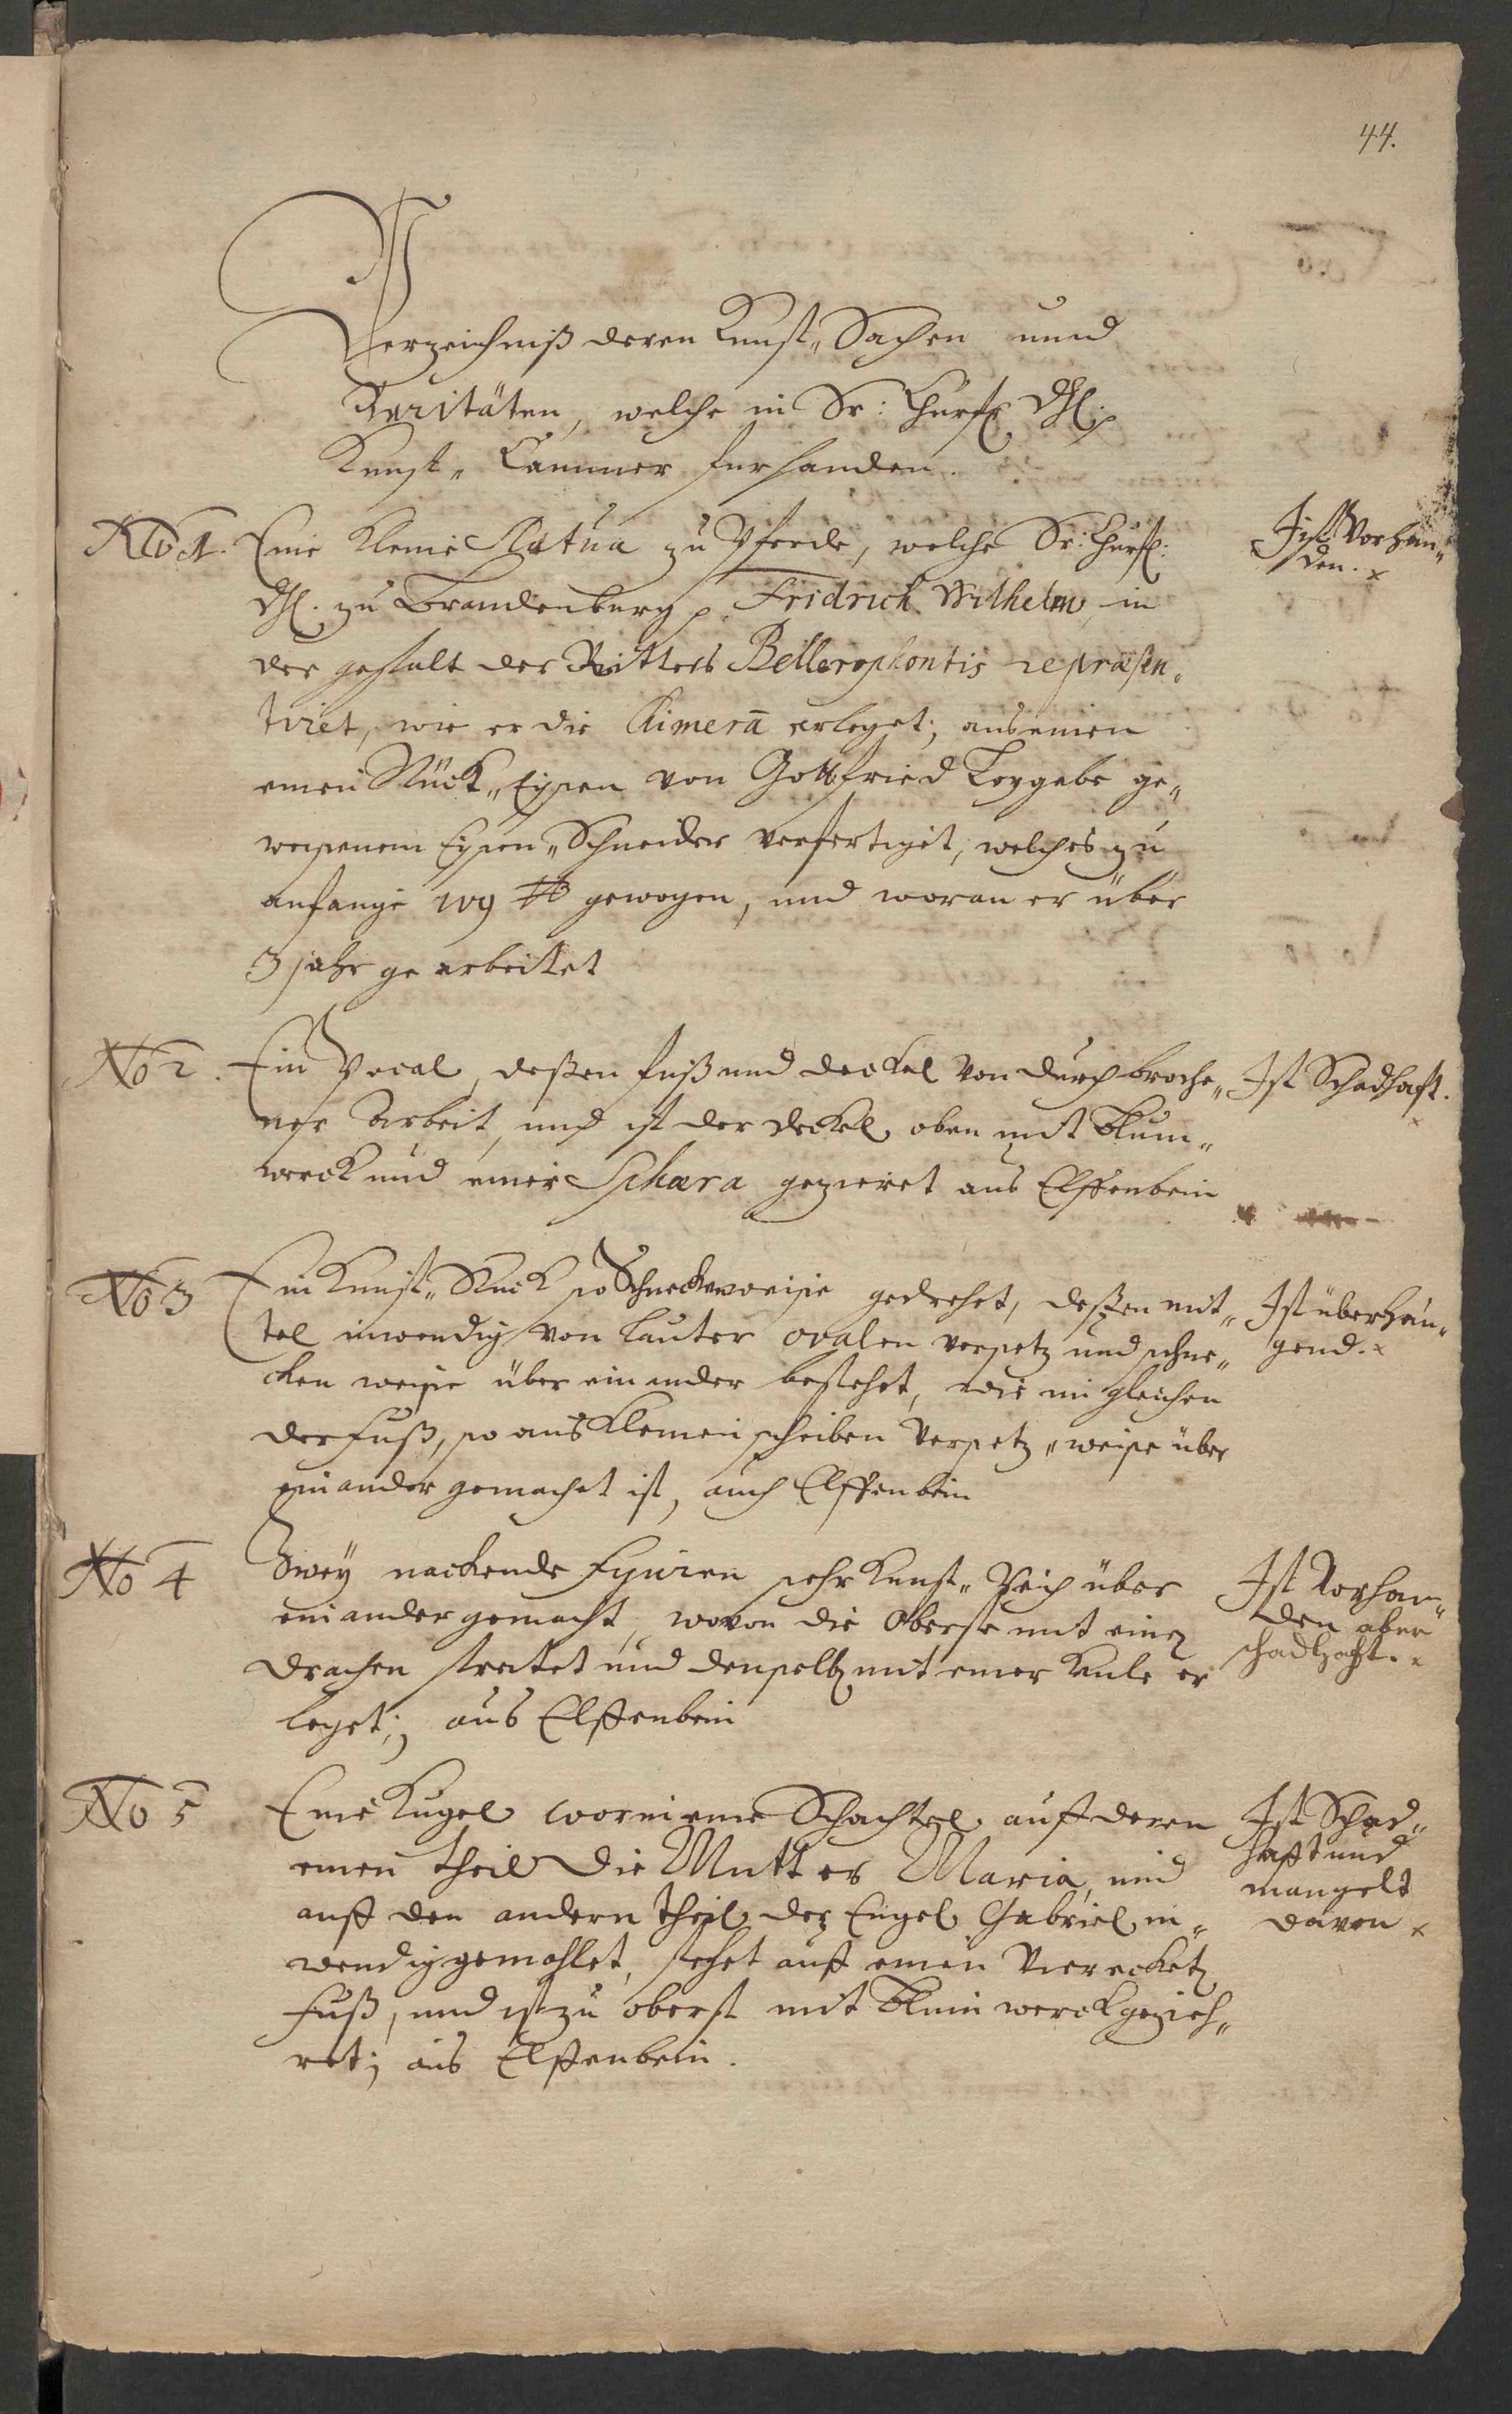 44.
Verzeichniß deren Kunst„Sachen unnd
Raritäten, welche in Sr: Churfl Dhl. p
Kunst„Cammer furhanden.
No 1. Eine kleine Statua zu Pferde, welche Sr: Churfl:
Dhl. zu Brandenburg p. Fridrich Wilhelm, in
der gestalt des Ritters Bellerophontis repræsen„
tiret, wie er die Chimerā erleget; aus einen
einen Stück„Eysen von Gottfried Leygebe ge„
wesenem Eysen„Schneider verfertiget, welches zu
anfange ℔ gewogen, und woran er über
3 jahr gearbeittet
Ist Vorhan„
den. x
No 2. Ein Pocal, deßen fuß und deckel von durchbroche„
ner Arbeit, und ist der deckel oben mit Blum„
werck und einer Sphæra gezieret aus Elffenbein
Ist Schadhafft.
x
No 3 Ein Kunst„Stuck so Schneckenweise gedrehet, deßen mit„
tel inwendig von lauter ovalen versetz und schne„
cken weise über einander bestehet, wie imgleichen
der fuß, so aus kleinen scheiben versetz„weise über
einander gemachet ist, auch Elffenbein
Ist überhän„
gend. x
No 4 Zwey nackende Figuren sehr Kunst„Reich über
einander gemacht, wovon die Oberste mit einen
drachen streitet und denselben mit einer Keule er
leget; aus Elffenbein
Ist Vorhan„
den aber
schadhafft. x
No 5 Eine Kugel worin eine Schachtel auff deren
einen theil die Mutter Maria, und
auff den andern theil der Engel Gabriel in„
wendig gemahlet, stehet auff einen Viereckten
Fuß, und ist zu oberst mit Blum werck gezieh„
ret; aus Elffenbein.
Ist Schad„
hafft und
mangelt
davon x